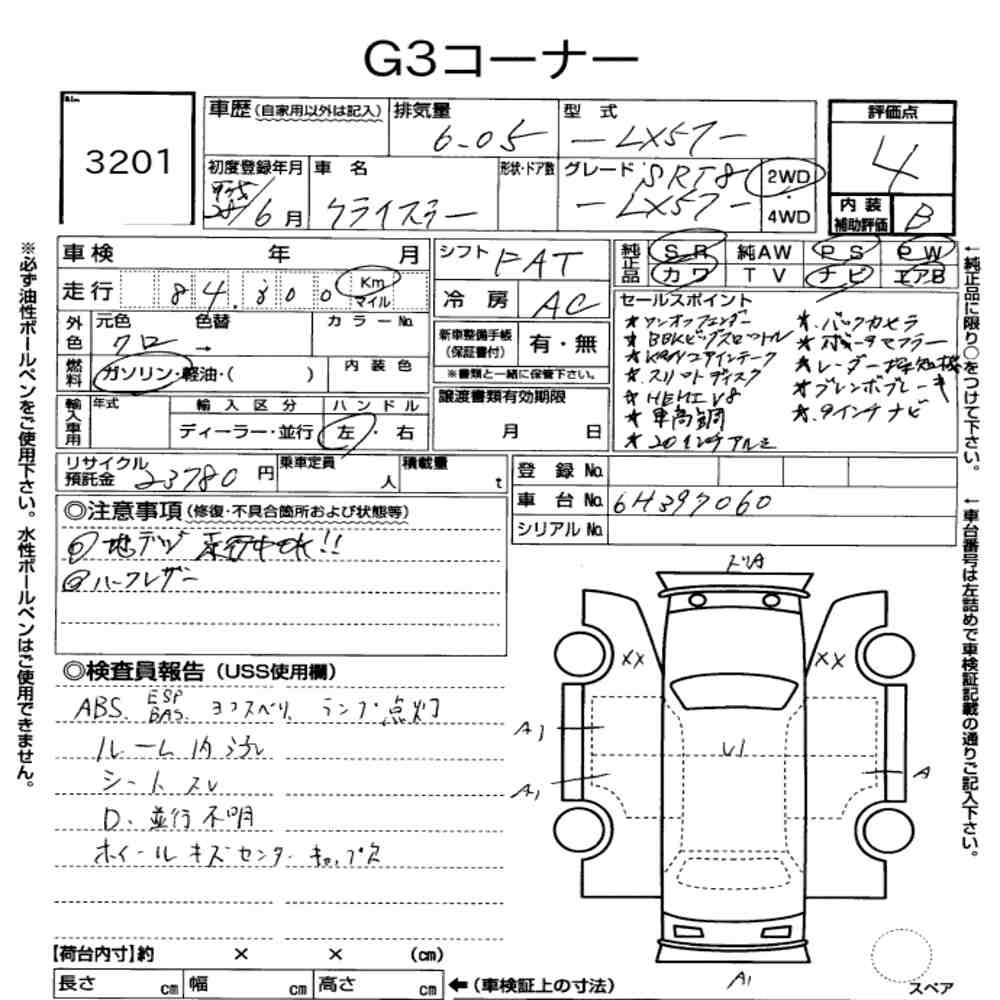 G3コーナー
3201
車歴(自家用以外は記入)
排気量
6.05
型式
－LX57－
評価点
4
初度登録年月
平成
28/6月
車名
クライスラー
形状・ドア数
グレード SRT8
－LX57－
2WD
4WD
内装
補助評価
B
車検 年 月
走行 84.800 Km
マイル
シフト FAT
冷房 AC
純正品
SR 純AW PS PW
カワ TV ナビ エアB
外色
元色 色替 カラーNo.
クロ →
燃料
ガソリン・軽油・( )
内装色
新車整備手帳
(保証書付)
有・無
※書類と一緒に保管下さい。
セールスポイント
★ワンオフフェンダー
★BBKビッグスロットル
★K&Nエアインテーク
★スリットディスク
★HEMI V8
★車高調
★20インチアルミ
★バックカメラ
★ボーラマフラー
★レーダー探知機
★ブレンボブレーキ
★9インチナビ
輸入車用
年式
輸入区分
ディーラー・並行
ハンドル
左・右
譲渡書類有効期限
月 日
リサイクル
預託金
23780円
乗車定員
人
積載量
t
登録No.
車台No. 6H397060
シリアルNo.
◎注意事項(修復・不具合箇所および状態等)
①地デジ 走行中OK!!
②ハーフレザー
◎検査員報告(USS使用欄)
ABS. ESP BAS. ヨコスベリ ランプ点灯
ルーム内汚れ
シートスレ
D、並行不明
ホイールキズセンターキャップ欠
【荷台内寸】約 × × (cm)
長さ cm 幅 cm 高さ cm
←(車検証上の寸法)
XX
XX
A1
A1
U1
A
A1
スペア
※必ず油性ボールペンをご使用下さい。水性ボールペンはご使用できません。
←純正品に限り○をつけて下さい。
←車台番号は左詰めで車検証記載の通りご記入下さい。